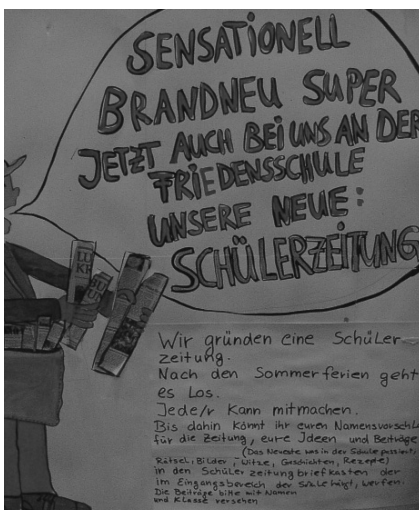 SENSATIONELL
BRANDNEU SUPER
JETZT AUCH BEI UNS AN DER
FRIEDENSSCHULE
UNSERE NEUE:
SCHÜLERZEITUNG
Wir gründen eine Schüler
zeitung.
Nach den Sommerferien geht
es Los.
Jede/r kann mitmachen.
Bis dahin könnt ihr euren Namensvorschla
für die Zeitung, eure Ideen und Beiträge
(Das Neueste was in der Schule passiert,
Rätsel, Bilder, Witze, Geschichten, Rezepte)
in den Schüler zeitung briefkasten der
im Eingangsbereich der Schule hängt, werfen.
Die Beiträge bitte mit Namen
und Klasse versehen